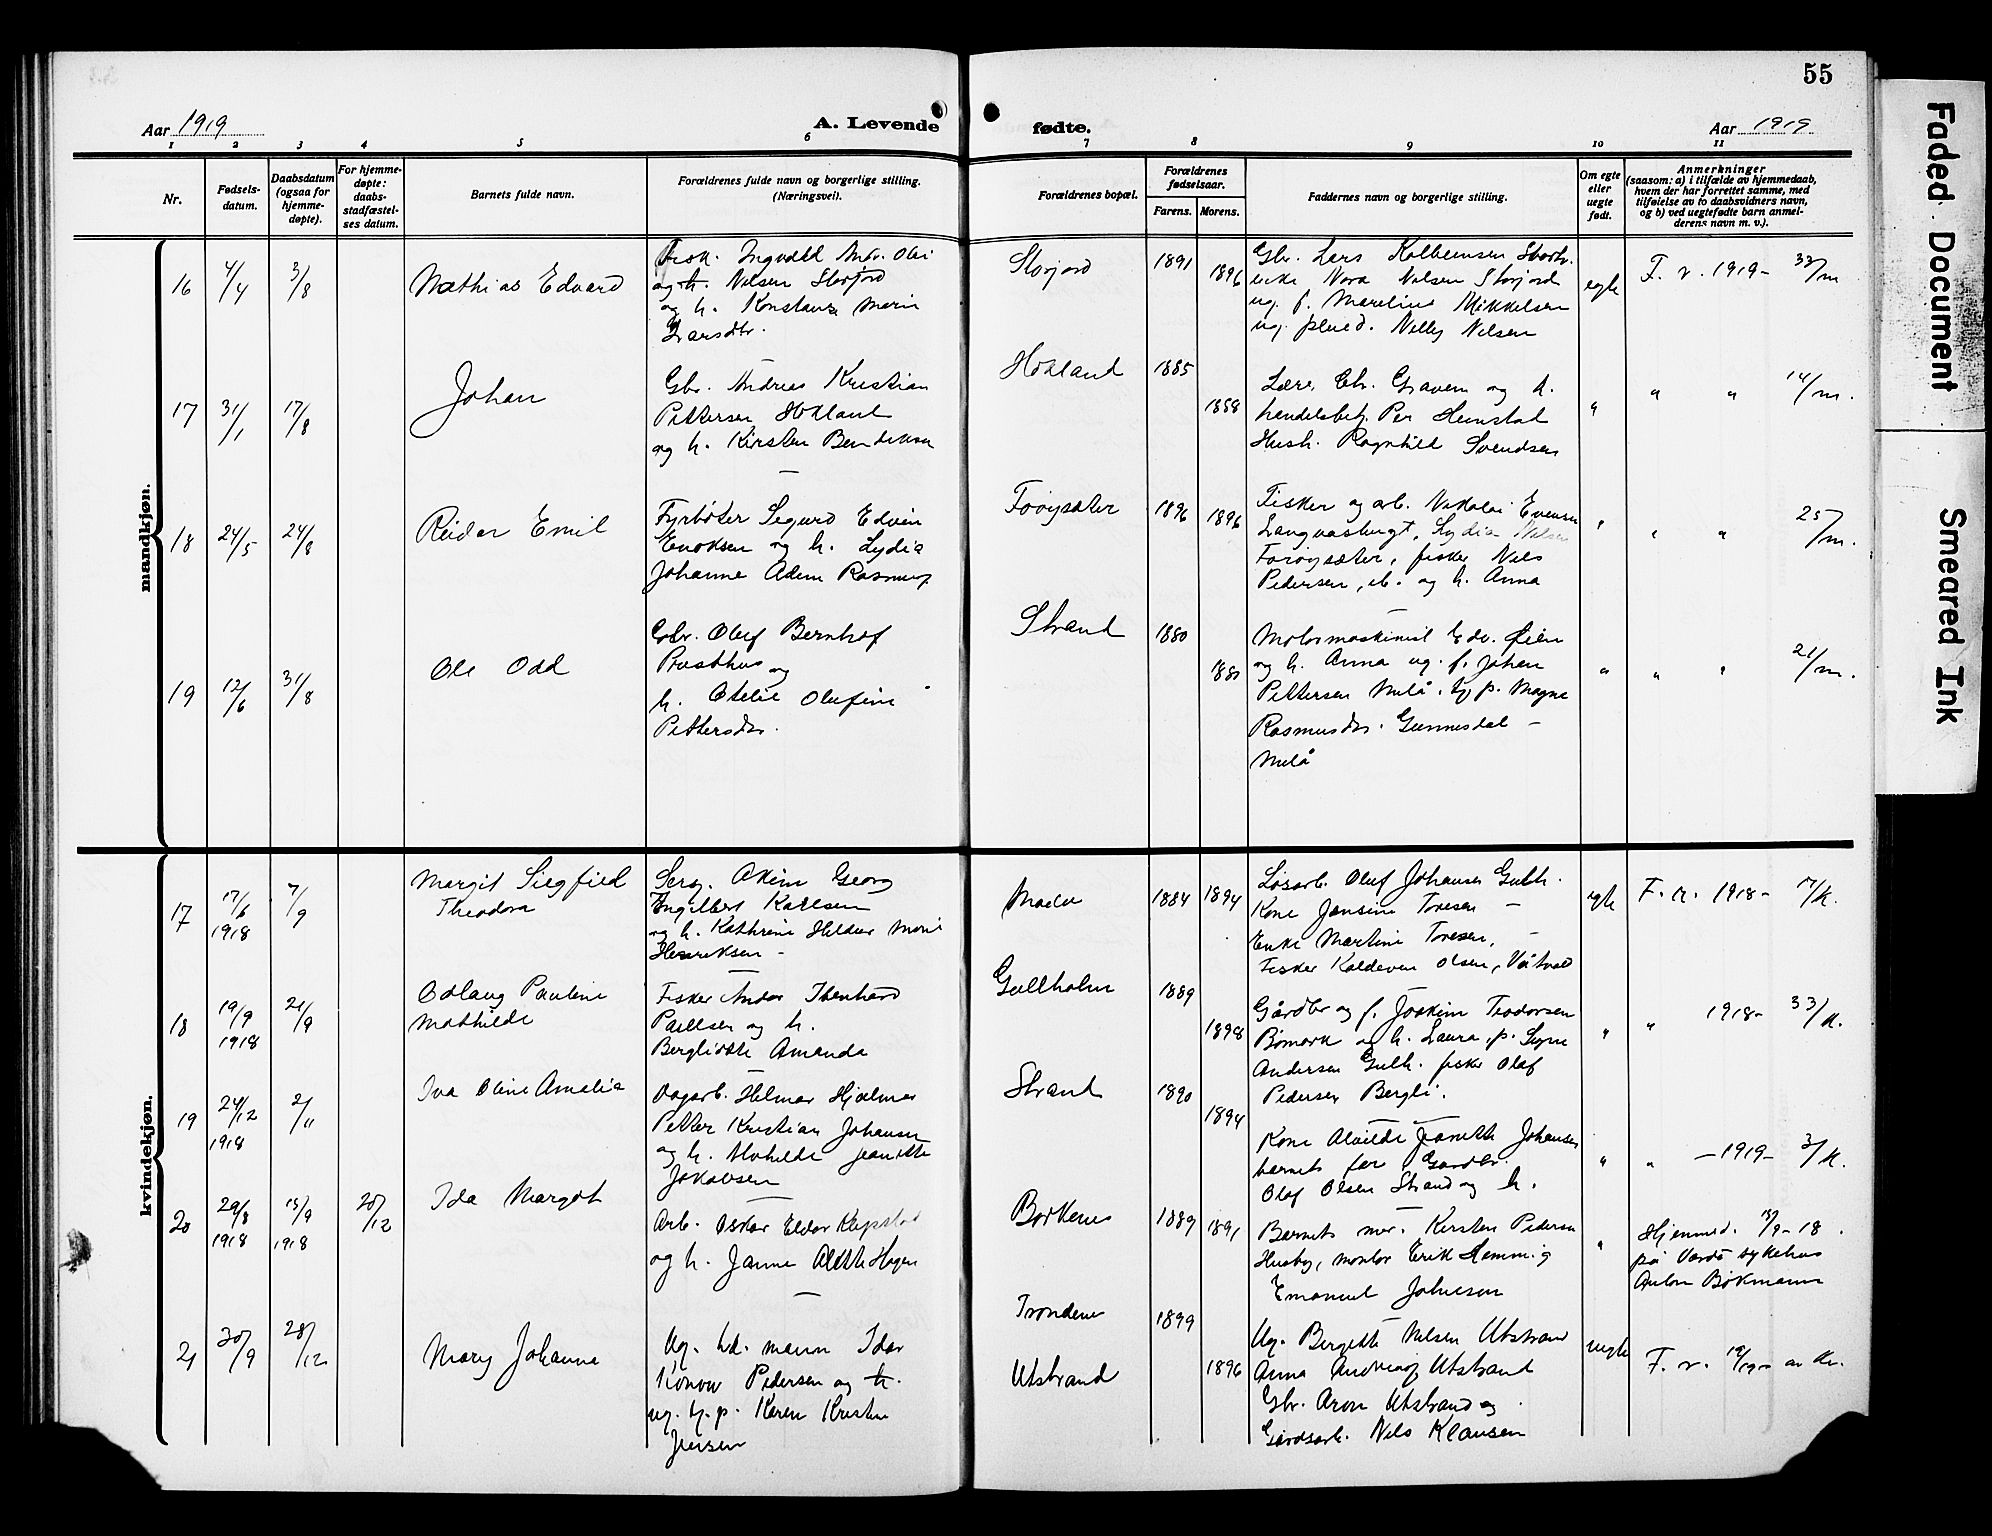 55
Aar 1919
A. Levende fødte.
Aar 1919
1 2 3 4 5 6 7 8 9 10 11
Nr.
Fødsels-
datum.
Daabsdatum
(ogsaa for
hjemme-
døpte).
For hjemme-
døpte:
daabs-
stadfæstel-
ses datum.
Barnets fulde navn.
Forældrenes fulde navn og borgerlige stilling.
(Næringsvei).
Forældrenes bopæl.
Forældrenes
fødselsaar.
Farens. Morens.
Faddernes navn og borgerlige stilling.
Om egte
eller
uegte
født.
Anmerkninger
(saasom: a) i tilfælde av hjemmedaab,
hvem der har forrettet samme, med
tilføielse av to daabsvidners navn,
og b) ved uegtefødte barn anmel-
derens navn m. v.).
mandkjøn.
16
4/4
3/8
Mathias Edvard
Ingvald
og h. Nilsen Storjord
og h. Konstanse Marin
Larsdtr.
Storjord
1891
1896
Gbr. Lars Kolbeinsen
enke Nora Nilsen Storjord
ug. f. Marelius Mikkelsen
ug. Nelly Nilsen
egte
F. r. 1919 - 33/m
17
31/1
17/8
Johan
Gbr. Andreas Kristian
Pettersen Hokland
og h. Kirsten Bendiksen
Hokland
1885
1888
Lære. Chr. Gravem og h.
handelsbetj. Per Heimstal
Hush. Ragnhild Svendsen
"
" " 14/m.
18
24/5
24/8
Reidar Emil
Fyrbøter Sigurd Edvin
Enoksen og h. Lydia
Johanne Adem Rasmus
Forøysæter
1896
1896
Fisker og arb. Nikolai Evensen
Langvasbugt, Lydia Nilsen
Forøysæter, fisker Nils
Pedersen, ib. og h. Anna
"
" " 25/m.
19
12/6
31/8
Ole Odd
Gbr. Oluf Bernhof
Prasthus og
h. Otelie Olufine
Pettersdtr.
Strand
1880
1880
Motormaskinist Edv. Øien
og h. Anna ug. f. Johan
Pettersen Melå, tj p. Magna
Rasmusdtr. Gunnesdal -
Melå
"
" " 21/m.
kvindekjøn.
17
17/6
1918
7/9
Margit Siegfred
Theodora
Serg. Akim Georg
Engilbert Karlsen
og h. Kathrine Hildur Marie
Henriksen -
1884
1894
Løsarb. Oluf Johansen Gulh.
Kone Jensine Toresen -
Enke Martine Toresen, -
Fisker Kaldeven Olsen,
egte
F. r. 1918 - 17/k.
18
19/9
1918
21/9
Odlaug Pauline
Mathilde
Fisker Andor Ibenhard
Paulsen og h.
Bergliotte Amanda
Gullholm
1889
1898
Gårdbr og f. Joakim Teodorsen
Bømark og h. Laura, p. Signe
Andersen Gulh. fisker Olaf
Pedersen Bergli.
"
" 1918 - 33/k.
19
24/12
1918
2/11
Iva Oline Amelia
Dagarb. Hilmar Hjalmar
Petter Kristian Johansen
og h. Alvhilde Jeanette
Jakobsen
Strand
1890
1894
Kone Alvilde Jeanette Johansen
barnets far, Gardbr.
Olaf Olsen Strand og h.
"
" - 1919 - 3/k.
20
29/8
1918
15/9
1918
20/12
Ida Margot
Arb. Oskar Eldor Kapstad
og h. Janna Alette Hagen
Borkenes
1889
1891
Barnets mor. Kirsten Pedersen
Husby, montør Erik Hemmig
Emanuel Johnsen
"
Hjemmed. 15/9-18.
på Vardø sykehus
Anton Bøkmann
21
30/9
28/12
Mary Johanna
Ug. hd. mann Idar
Konow Pedersen og h.
ug. tj. p. Karen Kristine
Jensen
Trondenes
Utstrand
1899
1896
Ug. Bergette Nilsen Utstrand
Anna Utstrand
Gbr. Aron Utstrand og
Gårdsarb. Nils Klausen
uegte
F. r.
Faded Document
Smeared Ink